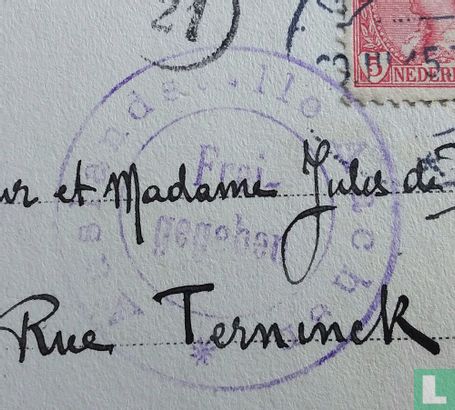 21
5
NEDERL
Auslandstelle Aachen
Frei-
gegeben
ur et Madame Jules de
Rue Terninck
L